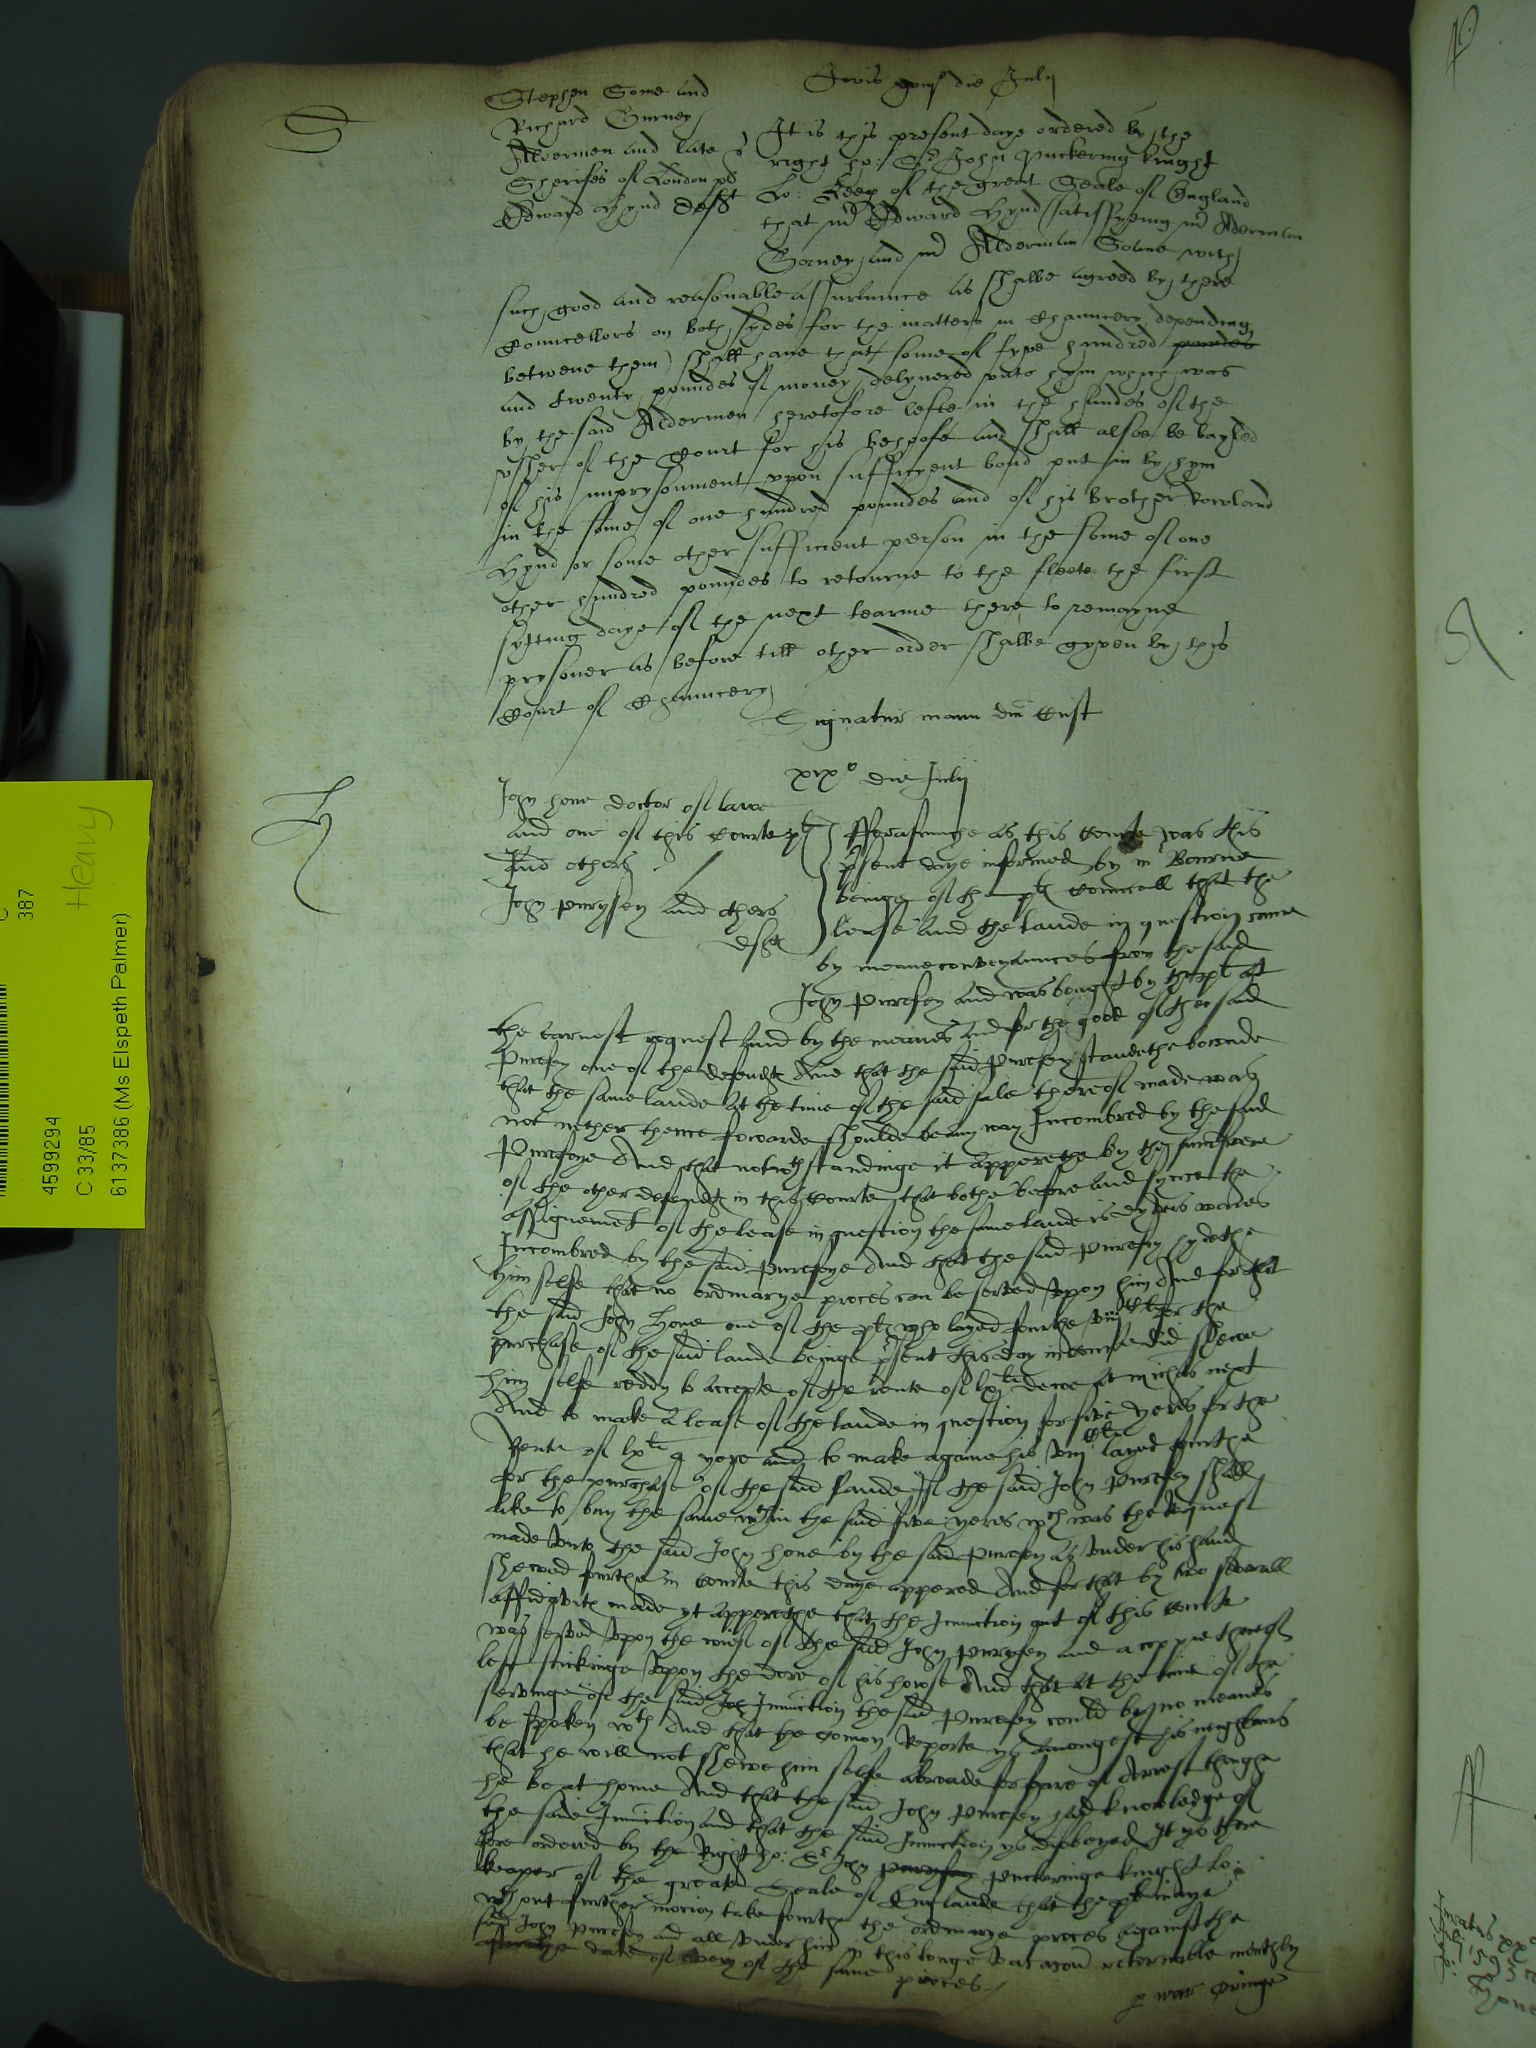 S
Stephen Some and
Richard Gurney
Aldermen and late
Sherifes of London pl
Edward Hynd deft
Jovis die Julij
It is this present daye ordered by the
right ho: Sr John Puckering knight
Lo: Keep of the great Seale of England
that mr Edward Hynd satisffyeing mr Alderman
Gorney and mr Alderman Some with
such good and reasonable assuraunce as shalbe agreed by there
Councellors on both sydes for the matters in Chauncery depending
betwene them shall have that some of fyve hundred poundes
and twenty poundes of money delyvered unto hym which was
by the said Aldermen heretofore lefte in the handes of the
usher of the Court for his behoofe and shall alsoe be bayled
of his imprysonment upon sufficyent bond put in by hym
in the some of one hundred poundes and of his brother Rowland
Hynd or some other sufficient person in the some of one
other hundred poundes to retourne to the fleete the first
sytting daye of the next tearme there to remayne
prysoner as before till other order shalbe gyven by this
Court of Chauncery
Signatur manu dni Cust
H
xixo die Julij
John hone doctor of lawe
and one of this Courte pl
And others
John purysey and others
deftes
Fforasmuche as this Courte was this
psent daye informed by mr Bourne
beinge of the pl Councell that the
lease and the lande in question came
by meane conveyaunces from the said
John Purefey and was bought by the pl at
the earnest request and by the meanes and for the good of the said
Purefey one of the defendtes And that the said Purefey standethe bounde
that the same lande at the time of the said sale thereof made was
not nether thence forwarde shoulde be any way Incombred by the said
Purefoye And that notwthstandinge it apperethe by the answere
of the other defendtes in this Courte that bothe before and synce the
assignement of the lease in question the same lande is dyvers waies
Incombred by the said Purefoye And that the said Purefey hydethe
him selfe that no ordinarye proces can be served upon him And for that
the said John Hone one of the pl who layed fourthe viijC li for the
purchase of the said lande beinge psent this day in Courte did shewe
him selfe reddy to accepte of the rente of lxli dewe at michas next
And to make a lease of the lande in question for five yeres for the
Rente of lxli a yere and to make againe his viijC li layed fourthe
for the purchase of the said lande If the said John Purefey shall
like to buy the same wthin the said five yeres wch was the Request
made unto the said John hone by the said Purefey as under his hand
shewed fourthe in Courte this daye appered And for that by two severall
affidavites made yt apperethe that the Iniunction out of this Courte
was served upon the wief of the said John Purefey and a coppie thereof
left stickinge upon the dore of his howse And that at the time of the
servinge of the said Iniunction the said Purefey could by no meanes
be spoken wth And that the comon Reporte ys amongest his neighbours
that he will not shewe him selfe abroade for feare of Arrest thoughe
he be at home And that the said John Purefey had knowledge of
the said Iniunction and that the said Iniunction ys disobeyed It ys there
fore ordered by the Right ho: Sr John Puckeringe knight lo:
keaper of the greate Seale of Englande that the pl maye
wthout further motion take fourthe the ordinarye proces against the
said John Purefey and all under him in this longe vacacion retornable monthly
after the date of every of the same proces
45999294
C 33/85
6137386 (Ms Elspeth Palmer)
387
Heavy